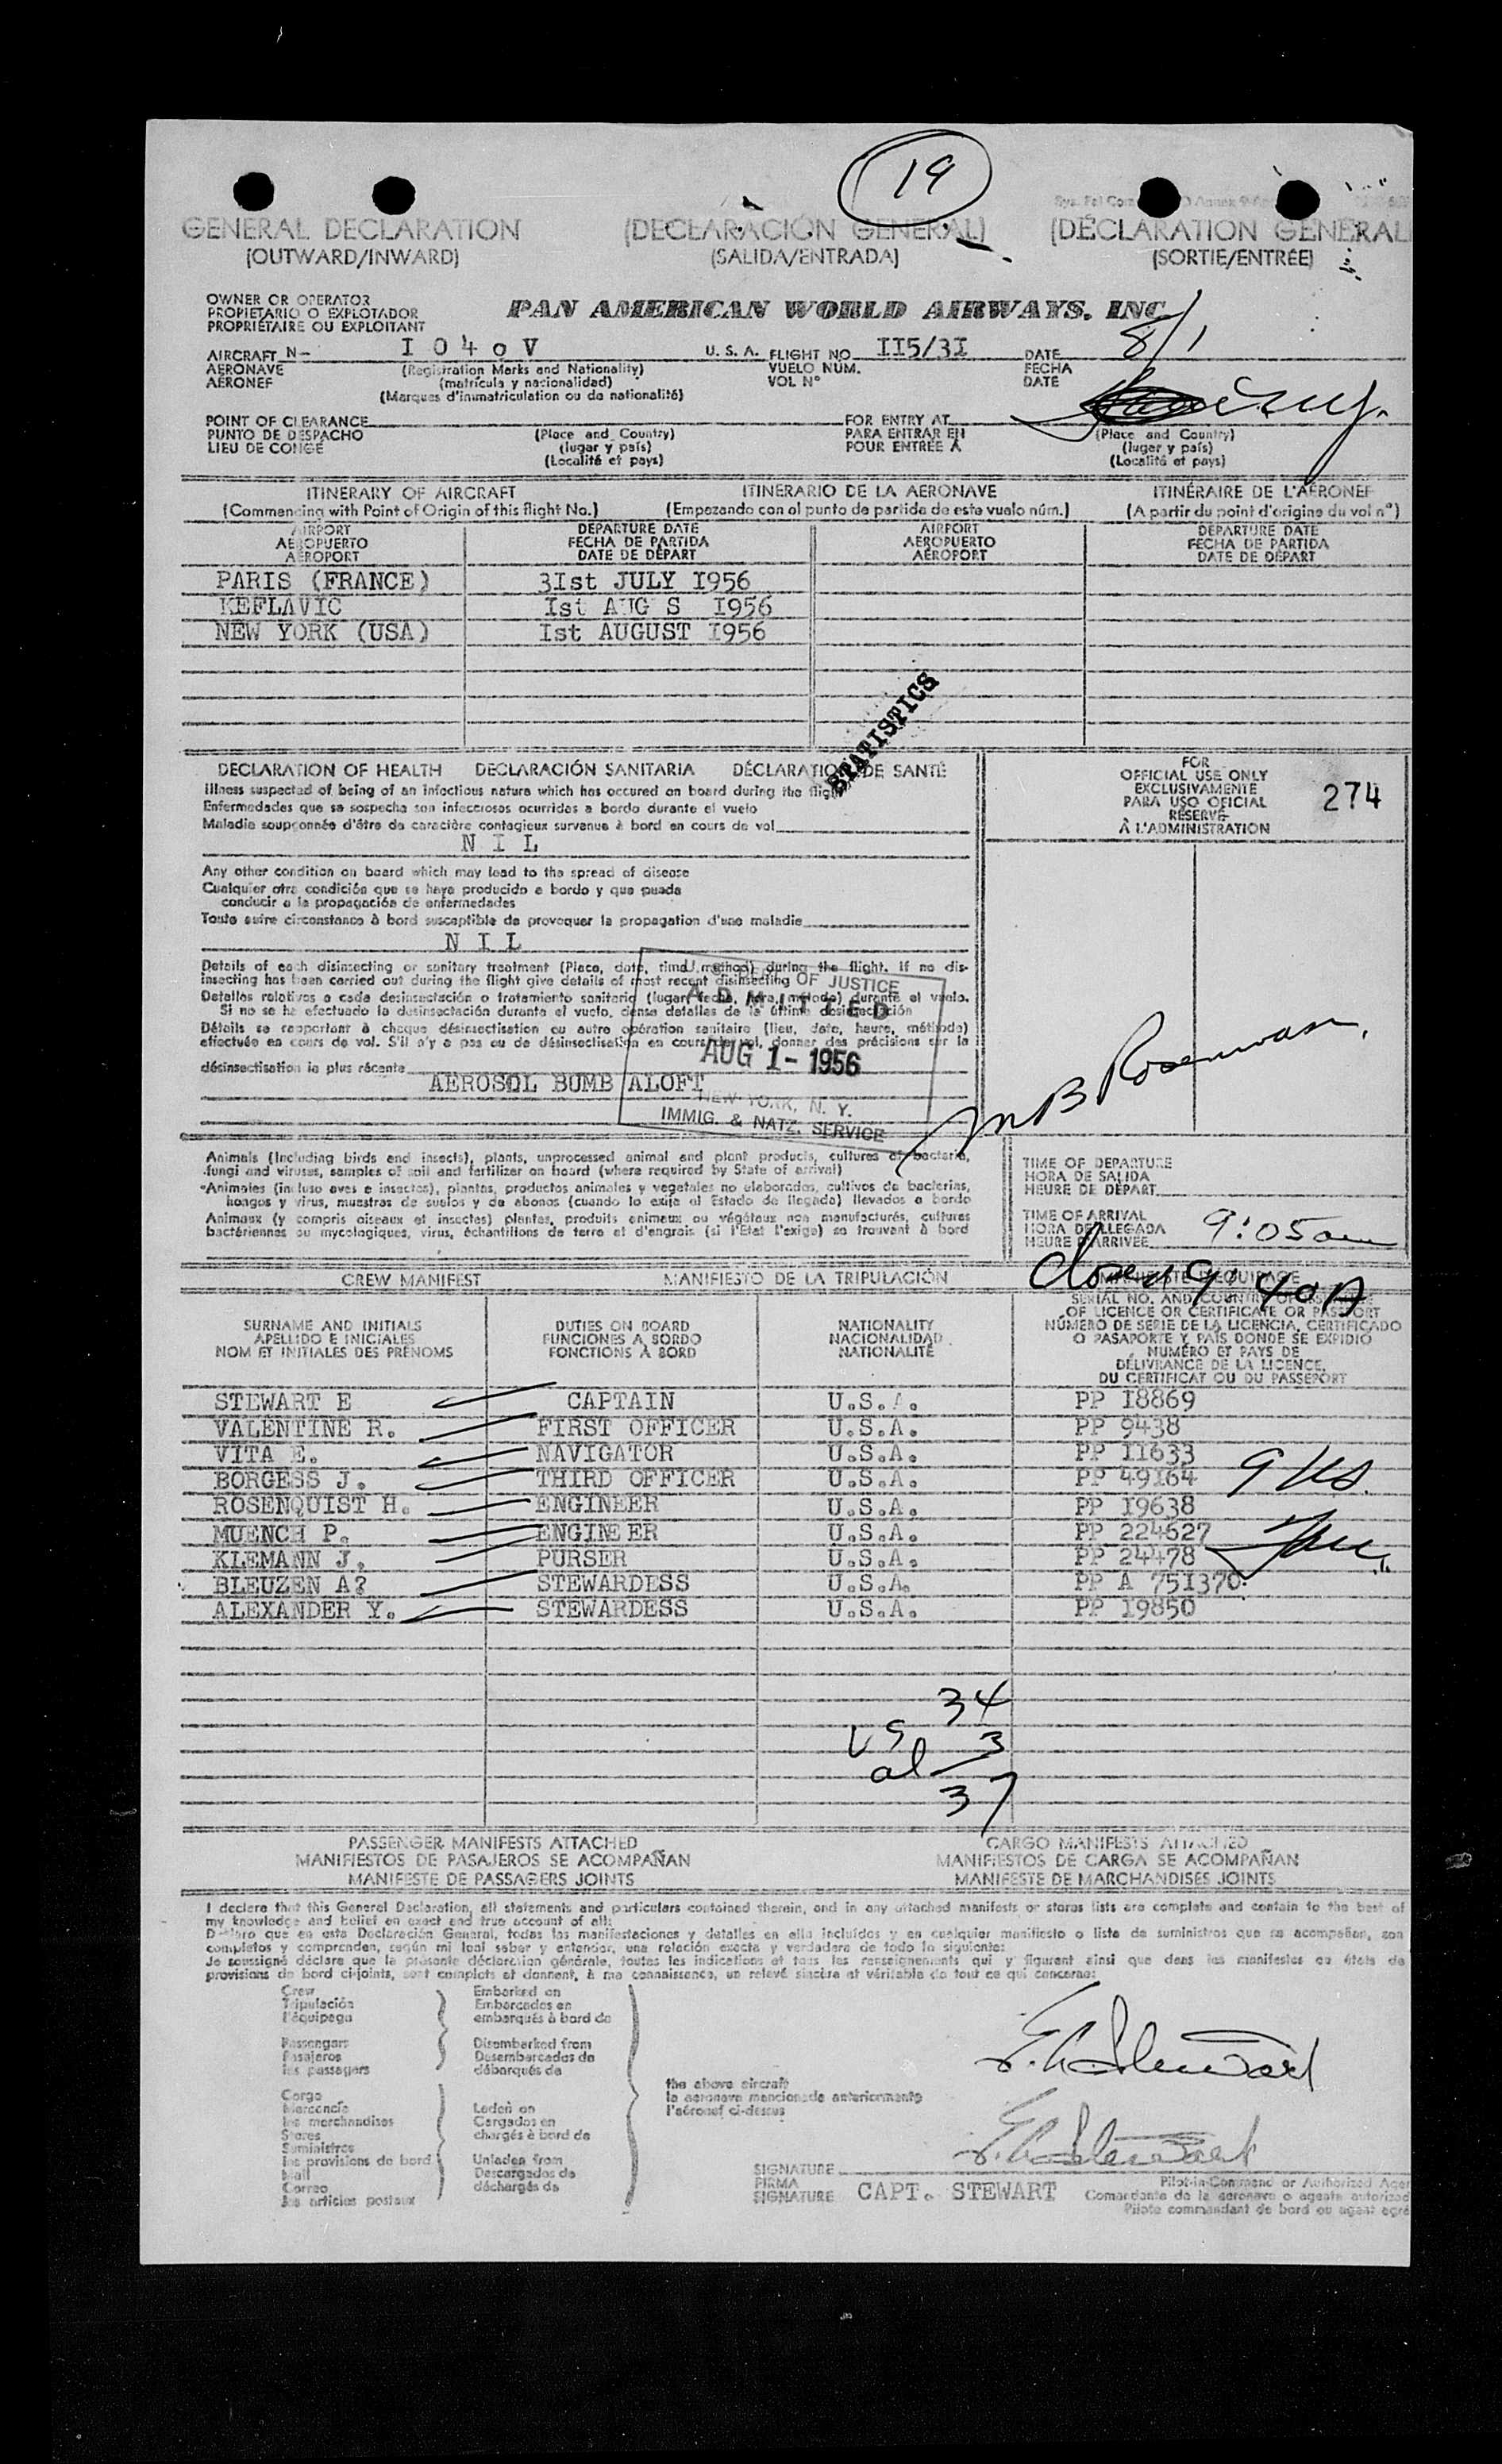 19
GENERAL DECLARATION (DECLARACIÓN GENERAL) (DÉCLARATION GÉNÉRAL
(OUTWARD/INWARD) (SALIDA/ENTRADA) (SORTIE/ENTRÉE)
OWNER OR OPERATOR
PROPIETARIO O EXPLOTADOR
PROPRIÉTAIRE OU EXPLOITANT
PAN AMERICAN WORLD AIRWAYS, INC.
AIRCRAFT N- I 0 4 0 V U. S. A. FLIGHT NO. II5/3I DATE 8/1
AERONAVE (Registration Marks and Nationality) VUELO NÚM. FECHA
AÉRONEF (matrícula y nacionalidad) VOL Nº DATE
(Marques d'immatriculation ou de nationalité)
POINT OF CLEARANCE FOR ENTRY AT
PUNTO DE DESPACHO (Place and Country) PARA ENTRAR EN (Place and Country)
LIEU DE CONGÉ (lugar y país) POUR ENTRÉE À (lugar y país)
(Localité et pays) (Localité et pays)
ITINERARY OF AIRCRAFT ITINERARIO DE LA AERONAVE ITINÉRAIRE DE L'AÉRONEF
(Commencing with Point of Origin of this flight No.) (Empezando con el punto de partida de este vuelo núm.) (A partir du point d'origine du vol nº)
AIRPORT DEPARTURE DATE AIRPORT DEPARTURE DATE
AEROPUERTO FECHA DE PARTIDA AEROPUERTO FECHA DE PARTIDA
AÉROPORT DATE DE DÉPART AÉROPORT DATE DE DÉPART
PARIS (FRANCE) 3Ist JULY I956
KEFLAVIC Ist AUG S I956
NEW YORK (USA) Ist AUGUST I956
STATISTICS
DECLARATION OF HEALTH DECLARACIÓN SANITARIA DÉCLARATION DE SANTÉ
Illness suspected of being of an infectious nature which has occured on board during the flight
Enfermedades que se sospecha son infecciosas ocurridas a bordo durante el vuelo
Maladie soupçonnée d'être de caractère contagieux survenue à bord en cours de vol
N I L
FOR
OFFICIAL USE ONLY
EXCLUSIVAMENTE
PARA USO OFICIAL
RÉSERVÉ
À L'ADMINISTRATION
274
Any other condition on board which may lead to the spread of disease
Cualquier otra condición que se haya producido a bordo y que pueda
conducir a la propagación de enfermedades
Toute autre circonstance à bord susceptible de provoquer la propagation d'une maladie
N I L
Details of each disinsecting or sanitary treatment (Place, date, time, method) during the flight. If no dis-
insecting has been carried out during the flight give details of most recent disinsecting
Detalles relativos a cada desinsectación o tratamiento sanitario (lugar, fecha, hora, método) durante el vuelo.
Si no se ha efectuado la desinsectación durante el vuelo, dense detalles de la última desinsectación
Détails se rapportant à chaque désinsectisation ou autre opération sanitaire (lieu, date, heure, méthode)
effectuée en cours de vol. S'il n'y a pas eu de désinsectisation en cours de vol, donner des précisions sur la
désinsectisation la plus récente
AEROSOL BUMB ALOFT
U. S. DEPT. OF JUSTICE
ADMITTED
AUG 1 - 1956
NEW YORK, N. Y.
IMMIG. & NATZ. SERVICE
Animals (Including birds and insects), plants, unprocessed animal and plant products, cultures of bacteria,
fungi and viruses, samples of soil and fertilizer on board (where required by State of arrival)
Animales (incluso aves e insectos), plantas, productos animales y vegetales no elaborados, cultivos de bacterias,
hongos y virus, muestras de suelos y de abonos (cuando lo exija el Estado de llegada) llevados a bordo
Animaux (y compris oiseaux et insectes) plantes, produits animaux ou végétaux non manufacturés, cultures
bactériennes ou mycologiques, virus, échantillons de terre et d'engrais (si l'Etat l'exige) se trouvant à bord
TIME OF DEPARTURE
HORA DE SALIDA
HEURE DE DÉPART
TIME OF ARRIVAL
HORA DE LLEGADA
HEURE D'ARRIVÉE 9:05 am
closed 9:40A
CREW MANIFEST MANIFIESTO DE LA TRIPULACIÓN MANIFESTE D'ÉQUIPAGE
SURNAME AND INITIALS DUTIES ON BOARD NATIONALITY
APELLIDO E INICIALES FUNCIONES A BORDO NACIONALIDAD
NOM ET INITIALES DES PRÉNOMS FONCTIONS À BORD NATIONALITÉ
OF LICENCE OR CERTIFICATE OR PASSPORT
NÚMERO DE SERIE DE LA LICENCIA, CERTIFICADO
O PASAPORTE Y PAÍS DONDE SE EXPIDIÓ
NUMÉRO ET PAYS DE
DÉLIVRANCE DE LA LICENCE,
DU CERTIFICAT OU DU PASSEPORT
STEWART E CAPTAIN U.S.A. PP I8869
VALENTINE R. FIRST OFFICER U.S.A. PP 9438
VITA E. NAVIGATOR U.S.A. PP II633
BORGESS J. THIRD OFFICER U.S.A. PP 49I64 9 US.
ROSENQUIST H. ENGINEER U.S.A. PP I9638
MUENCH P. ENGINEER U.S.A. PP 224627
KLEMANN J. PURSER U.S.A. PP 24478
BLEUZEN A? STEWARDESS U.S.A. PP A 75I370
ALEXANDER Y. STEWARDESS U.S.A. PP I9850
34
US 3
al
37
PASSENGER MANIFESTS ATTACHED CARGO MANIFESTS ATTACHED
MANIFIESTOS DE PASAJEROS SE ACOMPAÑAN MANIFIESTOS DE CARGA SE ACOMPAÑAN
MANIFESTE DE PASSAGERS JOINTS MANIFESTE DE MARCHANDISES JOINTS
I declare that this General Declaration, all statements and particulars contained therein, and in any attached manifests or stores lists are complete and contain to the best of
my knowledge and belief an exact and true account of all:
Declaro que en esta Declaración General, todas las manifestaciones y detalles en ella incluidos y en cualquier manifiesto o lista de suministros que se acompañan, son
completos y comprenden, según mi leal saber y entender, una relación exacta y verdadera de todo lo siguiente:
Je soussigné déclare que la présente déclaration générale, toutes les indications et tous les renseignements qui y figurent ainsi que dans les manifestes ou états de
provisions de bord ci-joints, sont complets et donnent, à ma connaissance, un relevé sincère et véritable de tout ce qui concerne:
Crew Embarked on
Tripulación Embarcados en
l'équipage embarqués à bord de
Passengers Disembarked from
Pasajeros Desembarcados de
les passagers débarqués de
the above aircraft
la aeronave mencionada anteriormente
l'aéronef ci-dessus
Cargo
Mercancía Laden on
les merchandises Cargados en
Stores chargés à bord de
Suministros
les provisions de bord Unladen from
Mail Descargados de
Correo déchargés de
les articles postaux
E. Stewart
E. Stewart
SIGNATURE
FIRMA
SIGNATURE CAPT. STEWART
Pilot-in-Command or Authorized Agen
Comandante de la aeronave o agente autorizad
Pilote commandant de bord ou agent agré